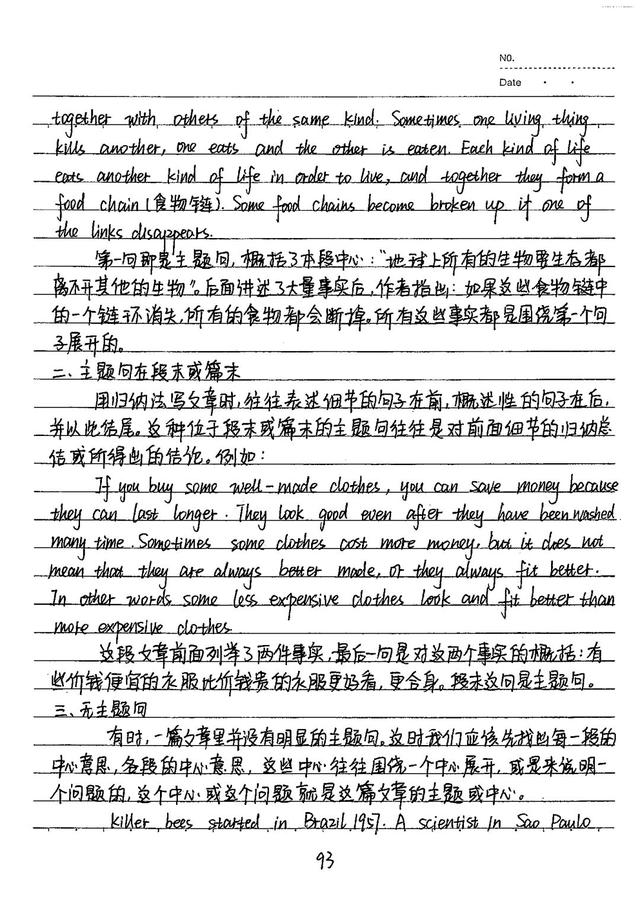 NO.
Date
together with others of the same kind. Sometimes one living thing
kills another, one eats and the other is eaten. Each kind of life
eats another kind of life in order to live, and together they form a
food chain (食物链). Some food chains become broken up if one of
the links disappears.
第一句即是主题句,概括了本段中心:“地球上所有的生物要生存都
离不开其他的生物”。后面讲述了大量事实后,作者指出:如果这些食物链中
的一个链环消失,所有的食物都会断掉。所有这些事实都是围绕第一个句
子展开的。
二、主题句在段末或篇末
用归纳法写文章时,往往表述细节的句子在前,概述性的句子在后,
并以此结尾。这种位于段末或篇末的主题句往往是对前面细节的归纳总
结或所得出的结论。例如:
If you buy some well-made clothes, you can save money because
they can last longer. They look good even after they have been washed
many time. Sometimes some clothes cost more money, but it does not
mean that they are always better made, or they always fit better.
In other words some less expensive clothes look and fit better than
more expensive clothes.
这段文章前面列举了两件事实,最后一句是对这两个事实的概括:有
些价钱便宜的衣服比价钱贵的衣服更好看,更合身。段末这句是主题句。
三、无主题句
有时,一篇文章里并没有明显的主题句。这时我们应该先找出每一段的
中心意思,各段的中心意思,这些中心往往围绕一个中心展开,或是来说明一
个问题的,这个中心或这个问题就是这篇文章的主题或中心。
Killer bees started in Brazil 1957. A scientist in Sao Paulo
93